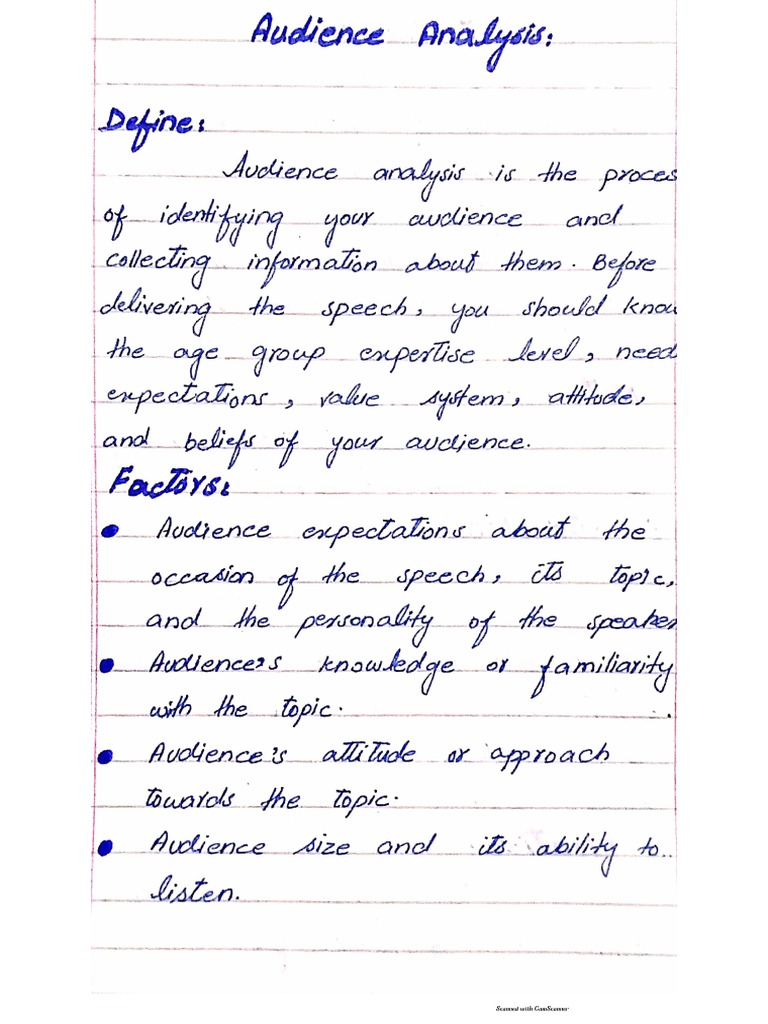 Audience Analysis:
Define:
Audience analysis is the proces
of identifying your audience and
collecting information about them. Before
delivering the speech, you should know
the age group expertise level, need
expectations, value system, attitude,
and beliefs of your audience.
Factors:
• Audience expectations about the
occasion of the speech, its topic,
and the personality of the speaker
• Audience's knowledge or familiarity
with the topic.
• Audience's attitude or approach
towards the topic.
• Audience size and its ability to
listen.
Scanned with CamScanner